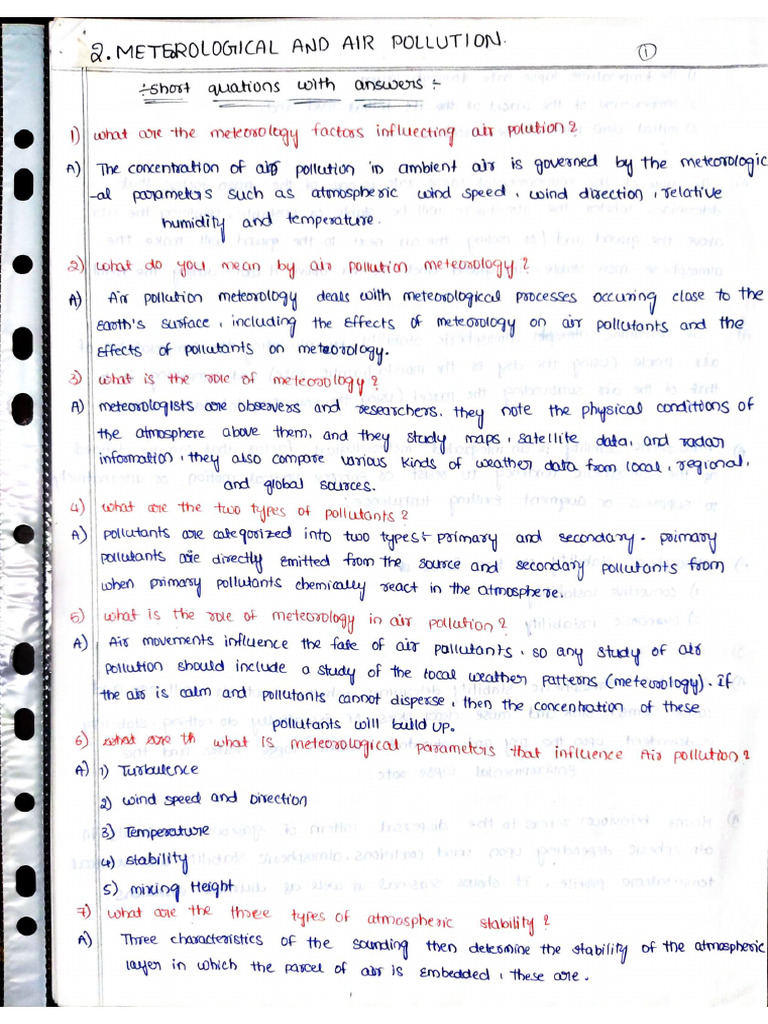 2. METEROLOGICAL AND AIR POLLUTION. 1
÷ short quations with answers ÷
1) what are the meteorology factors influecting air polution?
A) The concentration of air pollution in ambient air is governed by the meteorologic
-al parameters such as atmospheric wind speed, wind direction, relative
humidity and temperature.
2) what do you mean by air pollution meteorology?
A) Air pollution meteorology deals with meteorological processes occuring close to the
Earth's surface, including the Effects of meteorology on air pollutants and the
effects of pollutants on meteorology.
3) what is the role of meteorology?
A) meteorologists are observers and researchers. they note the physical conditions of
the atmosphere above them, and they study maps, satellite data, and radar
information, they also compare various kinds of weather data from local, regional,
and global sources.
4) what are the two types of pollutants?
A) pollutants are categorized into two types÷ primary and secondary. primary
pollutants are directly emitted from the source and secondary pollutants from
when primary pollutants chemically react in the atmosphere.
5) what is the role of meteorology in air pollution?
A) Air movements influence the fate of air pollutants. so any study of air
pollution should include a study of the local weather patterns (meteorology). if
the air is calm and pollutants cannot disperse, then the concentration of these
pollutants will build up.
6) what are th what is meteorological parameters that influence Air pollution?
A) 1) Turbulence
2) wind speed and Direction
3) Temperature
4) stability
5) mixing Height
7) what are the three types of atmospheric stability?
A) Three characteristics of the sounding then determine the stability of the atmospheric
layer in which the parcel of air is embedded, these are.